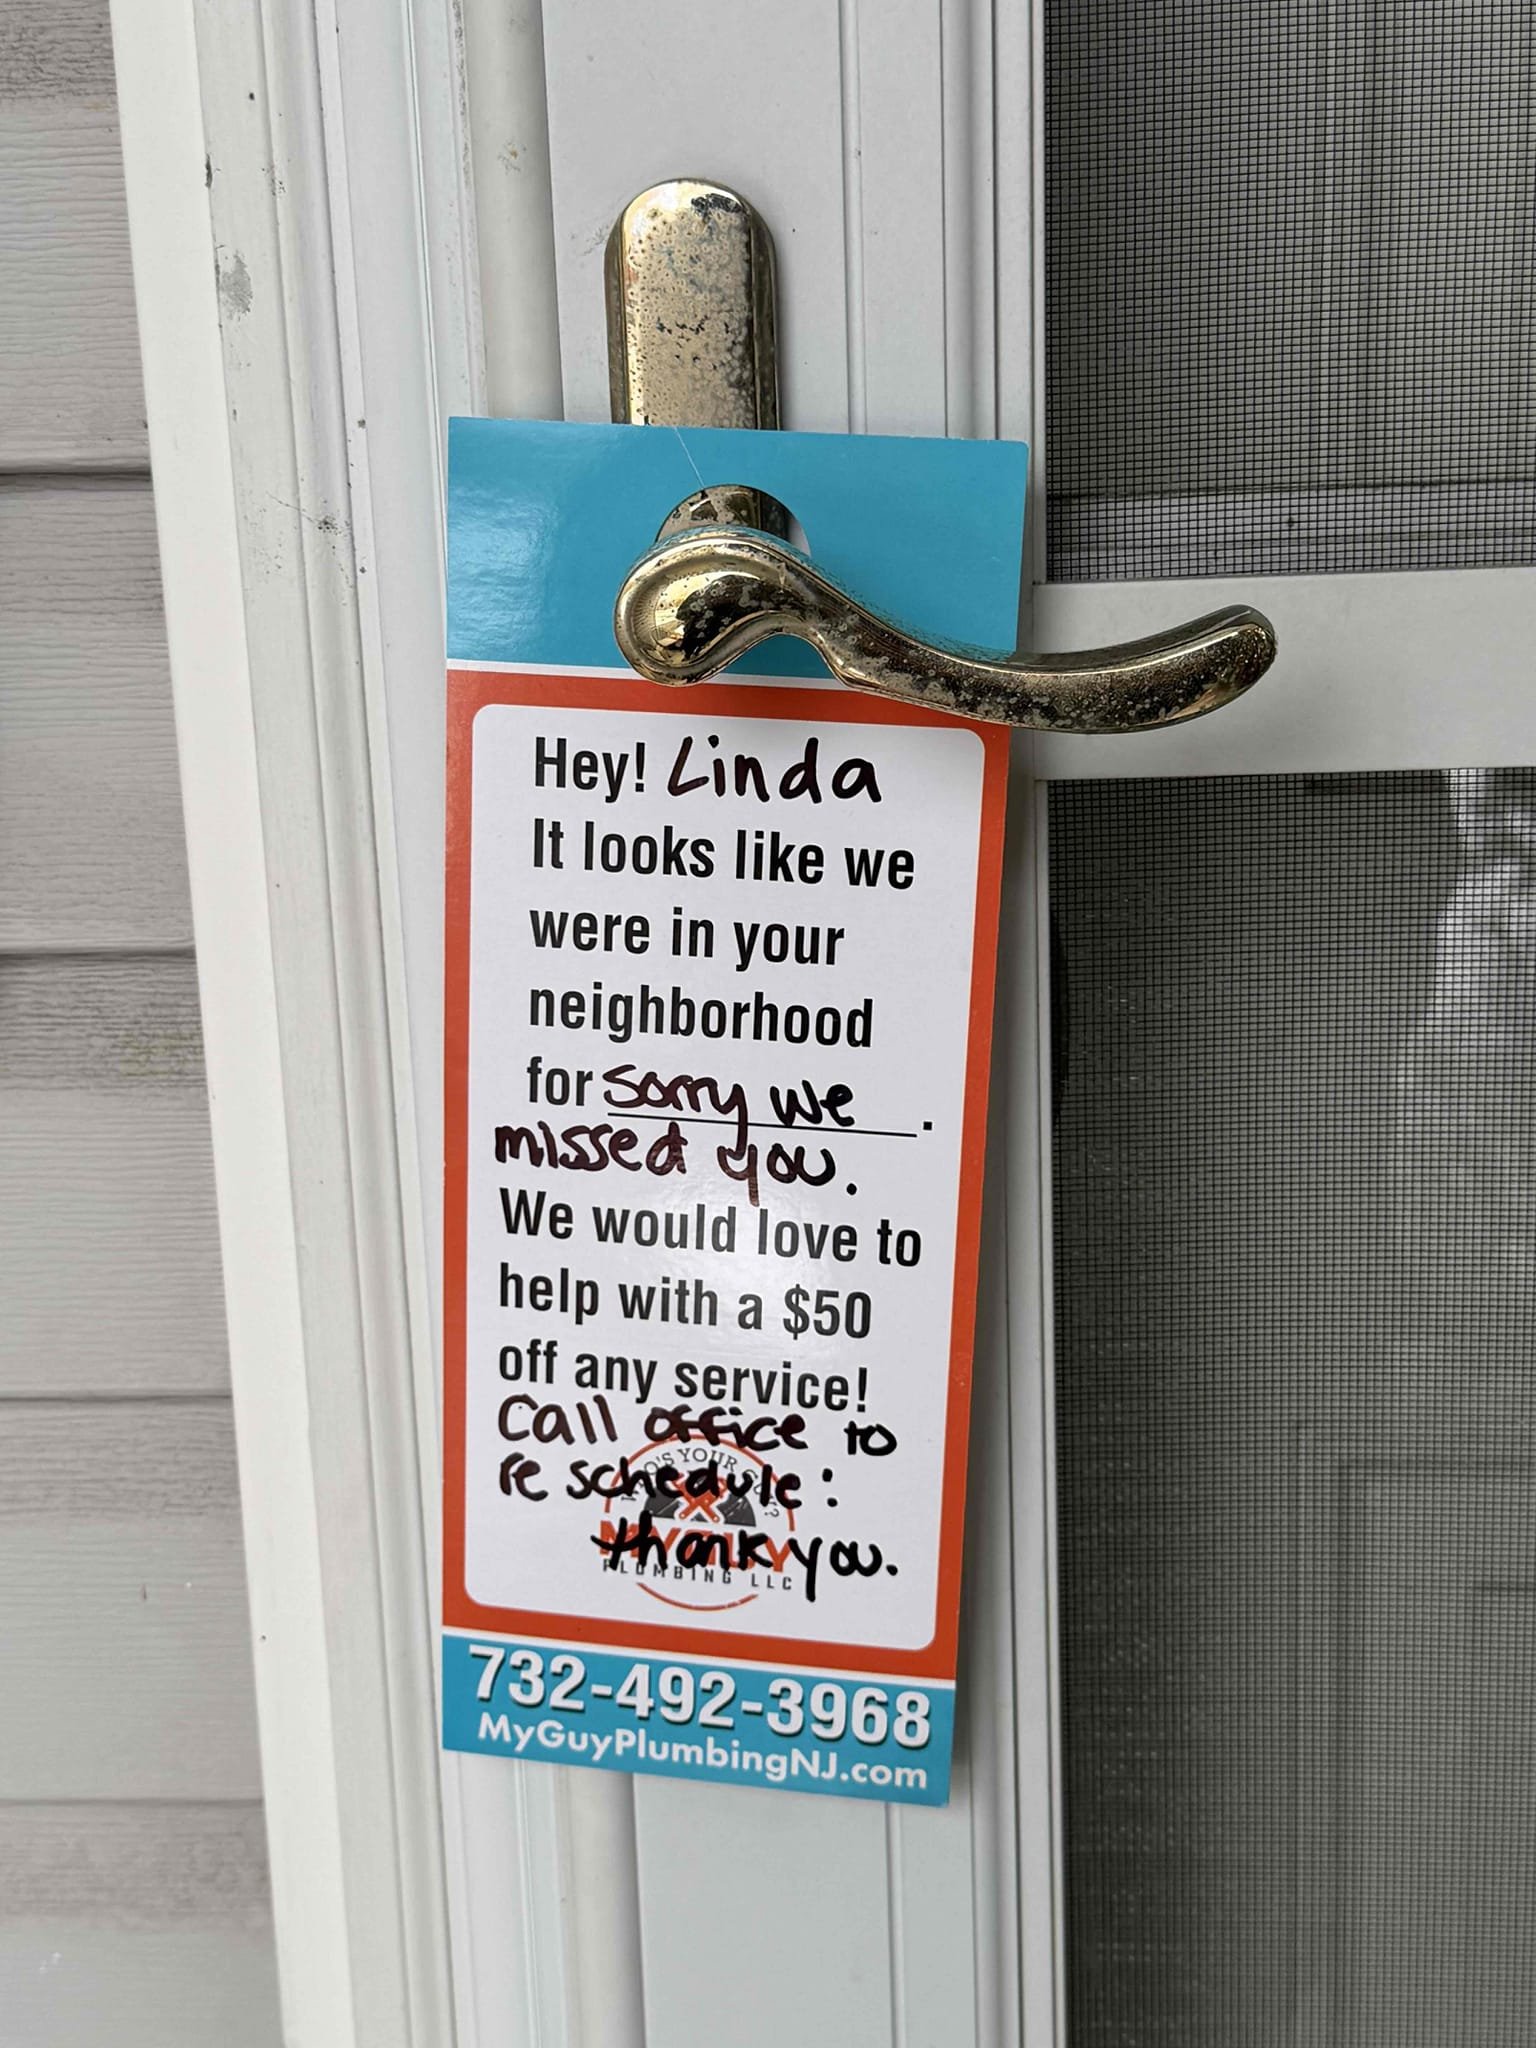 Hey! Linda
It looks like we
were in your
neighborhood
for sorry we .
missed you.
We would love to
help with a $50
off any service!
Call office to
WHO'S YOUR GUY?
re schedule:
thank you.
MY GUY
PLUMBING LLC
732-492-3968
MyGuyPlumbingNJ.com